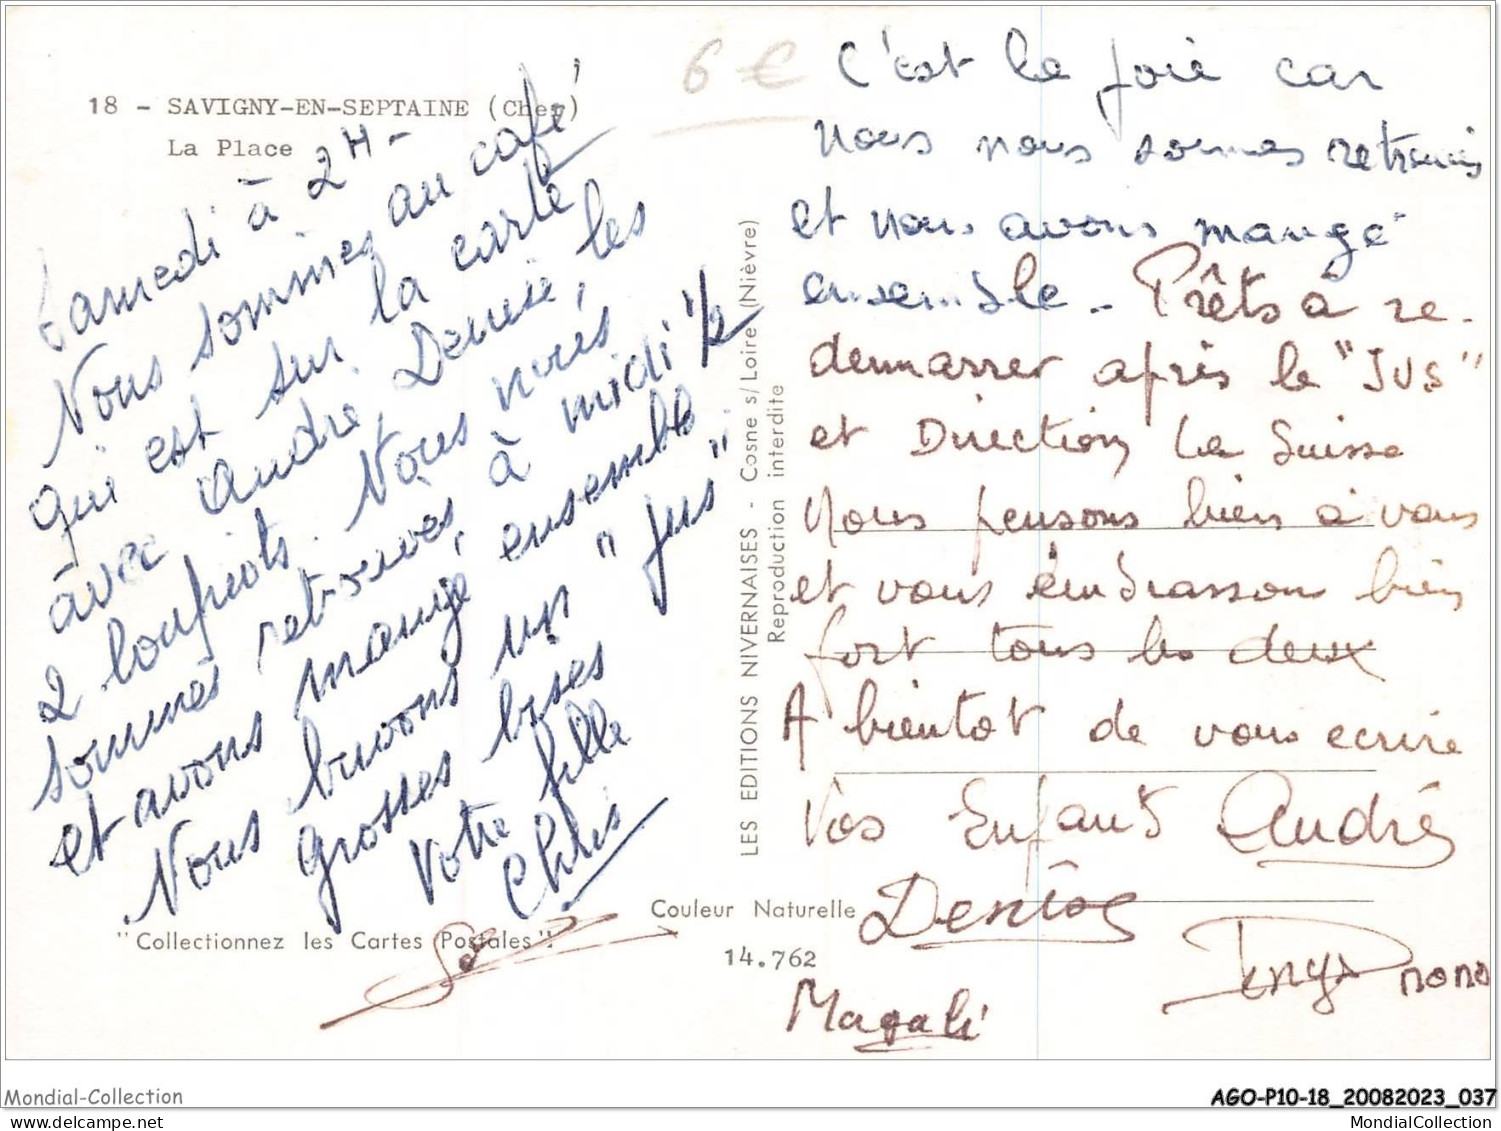 6 €
18 - SAVIGNY-EN-SEPTAINE (Cher)
La Place
Samedi à 2H -
Nous sommes au café
qui est sur la carte
avec André, Denise, les
2 loupiots. Nous nous
sommes retrouvés à midi 1/2
et avons mangé ensemble
Nous buvons un "jus"
grosses bises
Votre fille
Chris
"Collectionnez les Cartes Postales"!
LES EDITIONS NIVERNAISES - Cosne s/Loire (Nièvre)
Reproduction interdite
Couleur Naturelle
14.762
C'est la joie car
nous nous sommes retrouvés
et nous avons mangé
ensemble - Prêts à re-
demarrer après le "JUS"
et Direction La Suisse
Nous pensons bien à vous
et vous embrasson bien
fort tous les deux
A bientot de vous ecrire
Vos Enfants André
Denise
Denys nono
Magali
Mondial-Collection
AGO-P10-18_20082023_037
MondialCollection